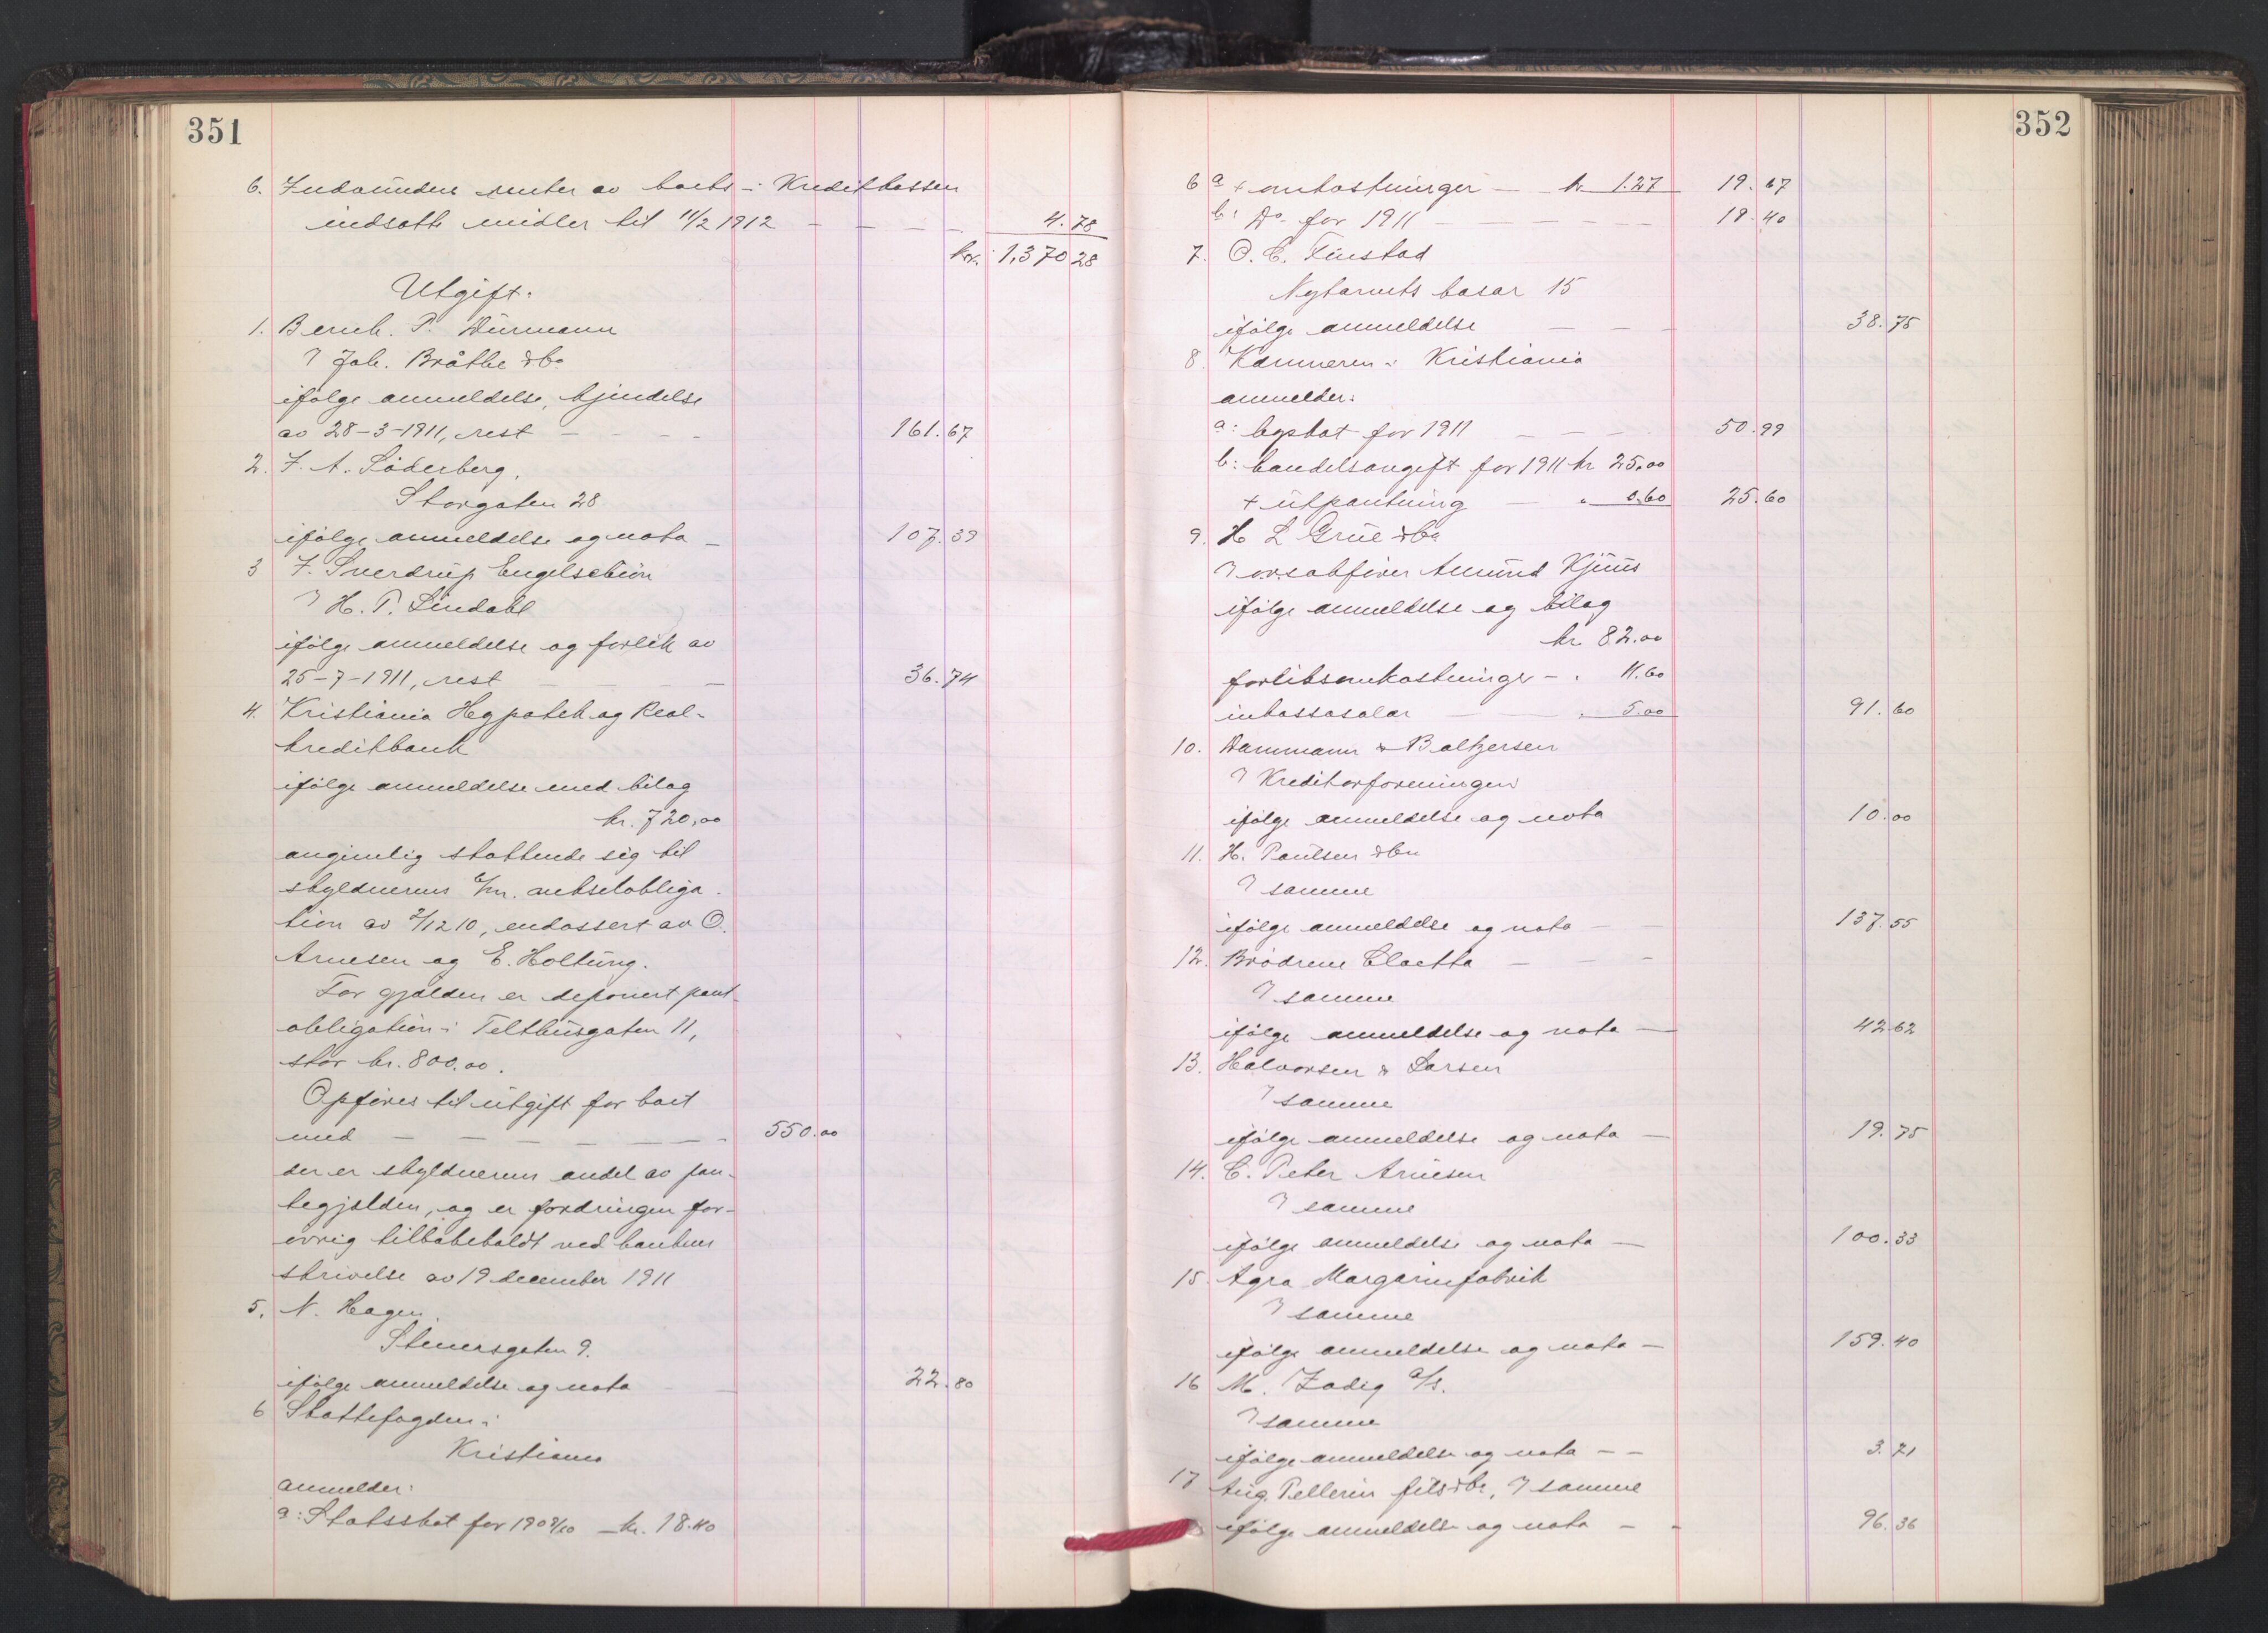 351
6. Indvundne renter av boets i Kreditkassen
indsatte midler til 11/2 1912 — — — — 4.78
kr. 1,370 28
Utgift:
1. Bernh. P. Dürmann
Joh. Bråthe & Co
ifølge anmeldelse, kjendelse
av 28-3-1911, rest — — — 161.67
2. F. A. Söderberg,
Storgaten 28
ifølge anmeldelse og nota — 107.39
3 F. Sverdrup Engelschiøn
H. P. Lindahl
ifølge anmeldelse og forlik av
25-7-1911, rest — — — 36.74
4. Kristiania Hypotek og Real-
kreditbank
ifølge anmeldelse med bilag
kr. 720,00
angivelig støttende sig til
skyldnerens 6/m. vekselobliga-
tion av 2/12 10, endossert av O.
Arnesen og E. Holtung.
For gjælden er deponert pant-
obligation i Telthusgaten 11,
stor kr. 800.00.
Opføres til utgift for boet
med — — — — — — 550.00
der er skyldnerens andel av pan-
tegjælden, og er fordringen for-
øvrig tilbakeholdt ved bankens
skrivelse av 19 december 1911
5. N. Hagen
Stenersgaten 9.
ifølge anmeldelse og nota — 22.80
6 Skattefogden i
Kristiania
anmelder:
a: Statsskat for 1909/10 — kr. 18.40
352
6 a + omkostninger — kr 1.27 19.67
b: Do. for 1911 — — — — 18.40
7. O. C. Finstad
Nybarvets basar 15
ifølge anmeldelse — — — 38.75
8 Kæmneren i Kristiania
anmelder:
a: byskat for 1911 — — — 50.99
b: handelsavgift for 1911 kr 25.00
+ utpantning — " 0.60 25.60
9. H L Grüe & Co
overretssakfører Amund Kjuus
ifølge anmeldelse og bilag
kr 82.00
forliksomkostninger — . 11.60
inkassosalær — . 5.00 91.60
10. Dammann & Baltzersen
Kreditorforeningen
ifølge anmeldelse og nota 10.00
11. H. Paulsen & Co
samme
ifølge anmeldelse og nota — — 137.55
12. Brødrene Cloetta — — —
samme
ifølge anmeldelse og nota — 42 62
13. Halvorsen & Larsen
samme
ifølge anmeldelse og nota — 19.75
14. C. Peter Arnesen
samme
ifølge anmeldelse og nota — 100.33
15. Agra Margarinfabrik
samme
ifølge anmeldelse og nota — 159.40
16 M. Zadig a/s.
samme
ifølge anmeldelse og nota — — 3.21
17 Aug. Pellerin fils & Co, samme
ifølge anmeldelse og nota — — 96.36